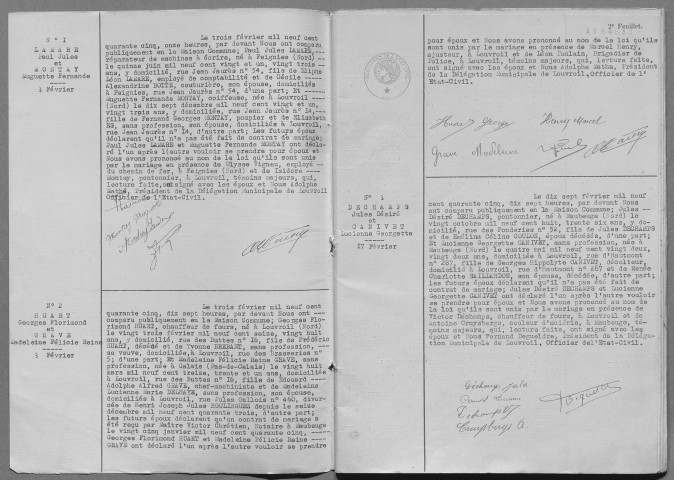 N° 1
LAMARE
Paul Jules
et
MONTAY
Huguette Fernande
-----
3 Février
Le trois février mil neuf cent
quarante cinq, onze heures, par devant Nous ont comparu
publiquement en la Maison Commune; Paul Jules LAMARE,
réparateur de machines à écrire, né à Feignies (Nord)
le quinze juin mil neuf cent vingt et un, vingt trois
ans, y domicilié, rue Jean Jaurès n° 54, fils de
Léon LAMARE, employé de comptabilité et de Cécile
Alexandrine, couturière, son épouse, domiciliés
à Feignies, rue Jean Jaurès n° 54, d'une part; Et
Huguette Fernande MONTAY, coiffeuse, née à Louvroil
(Nord) le dix sept décembre mil neuf cent vingt et un,
vingt trois ans, y domiciliée, rue Jean Jaurès n° 14,
fille de Fernand Georges MONTAY, pompier et de Elisabeth
sans profession, son épouse, domiciliés à Louvroil,
rue Jean Jaurès n° 14, d'autre part; Les futurs époux
déclarent qu'il n'a pas été fait de contrat de mariage;
Paul Jules LAMARE et Huguette Fernande MONTAY, ont déclaré
l'un après l'autre vouloir se prendre pour époux et
Nous avons prononcé au nom de la loi qu'ils sont unis
par le mariage en présence de Ulysse, employé
du chemin de fer, à Feignies (Nord) et de Isidore
Montay, pontonnier, à Louvroil, témoins majeurs, qui,
lecture faite, ont signé avec les époux et Nous Adolphe
Mathé, Président de la Délégation Municipale de Louvroil
Officier de l'Etat-Civil.
N° 2
HUART
Georges Florimond
et
GRAVE
Madeleine Félicie Reine
-----
3 Février
Le trois février mil neuf cent
quarante cinq, dix sept heures, par devant Nous ont
comparu publiquement en la Maison Commune; Georges Florimond
HUART, chauffeur de fours, né à Louvroil (Nord)
le vingt trois février mil neuf cent seize, vingt huit
ans, y domicilié, rue des Buttes n° 16, fils de Frédéric
HUART, décédé et de Yvonne, sans profession,
sa veuve, domiciliée à Louvroil, rue des Brasseries n°
5; d'une part; Et Madeleine Félicie Reine GRAVE, sans
profession, née à Calais (Pas-de-Calais) le vingt huit
mars mil neuf cent treize, trente et un ans, domiciliée
à Louvroil, rue des Buttes n° 16, fille de Edouard
Adolphe Alfred GRAVE, chef-machiniste et de Madeleine
Lucienne Marie, sans profession, son épouse,
domiciliés à Louvroil, rue Jules Gallois n° 460, divorcée
de Henri Joseph Jules depuis le seize
décembre mil neuf cent quarante trois, d'autre part;
Les futurs époux déclarent qu'un contrat de mariage a
été reçu par Maître Victor Chrétien, Notaire à Maubeuge
le vingt cinq janvier mil neuf cent quarante cinq,
Georges Florimond HUART et Madeleine Félicie Reine
GRAVE ont déclaré l'un après l'autre vouloir se prendre
2° Feuillet.
pour époux et Nous avons prononcé au nom de la loi qu'ils
sont unis par le mariage en présence de Marcel Henry,
ajusteur, à Louvroil et de Léon Poulain, Brigadier de
Police, à Louvroil, témoins majeurs, qui, lecture faite,
ont signé avec les époux et Nous Adolphe Mathé, Président
de la Délégation Municipale de Louvroil, Officier de l'
Etat-Civil.
Huart George Henry Marcel
Grave Madeleine
DECHAMPS
Jules Désiré
et
CANIVET
Lucienne Georgette
-----
17 Février
Le dix sept février mil neuf
cent quarante cinq, dix sept heures, par devant Nous ont
comparu publiquement en la Maison Commune; Jules
Désiré DECHAMPS, pontonnier, né à Maubeuge (Nord) le
vingt octobre mil neuf cent huit, trente six ans, y domicilié,
rue des Fonderies n° 52, fils de Jules DECHAMPS
et de Céline, son épouse, décédés, d'une part;
Et Lucienne Georgette CANIVET, sans profession, née à
Maubeuge (Nord) le quatre mai mil neuf cent vingt deux,
vingt deux ans, domiciliée à Louvroil, rue d'Hautmont
n° 287, fille de Georges Hippolyte CANIVET,
domicilié à Louvroil, rue d'Hautmont n° 287 et de Renée
Charlotte, son épouse, décédée, d'autre part;
Les futurs époux déclarent qu'il n'a pas été fait de
contrat de mariage; Jules Désiré DECHAMPS et Lucienne
Georgette CANIVET ont déclaré l'un après l'autre vouloir
se prendre pour époux et Nous avons prononcé au nom de
la loi qu'ils sont unis par le mariage en présence de
Victor Déchamps, chauffeur de fours, à Louvroil et de
Antoine, à Maubeuge, témoins
majeurs, qui, lecture faite, ont signé avec les
époux et Nous Fernand, président de la Délégation
Municipale de Louvroil, Officier de l'Etat-Civil.
Déchamps Jules